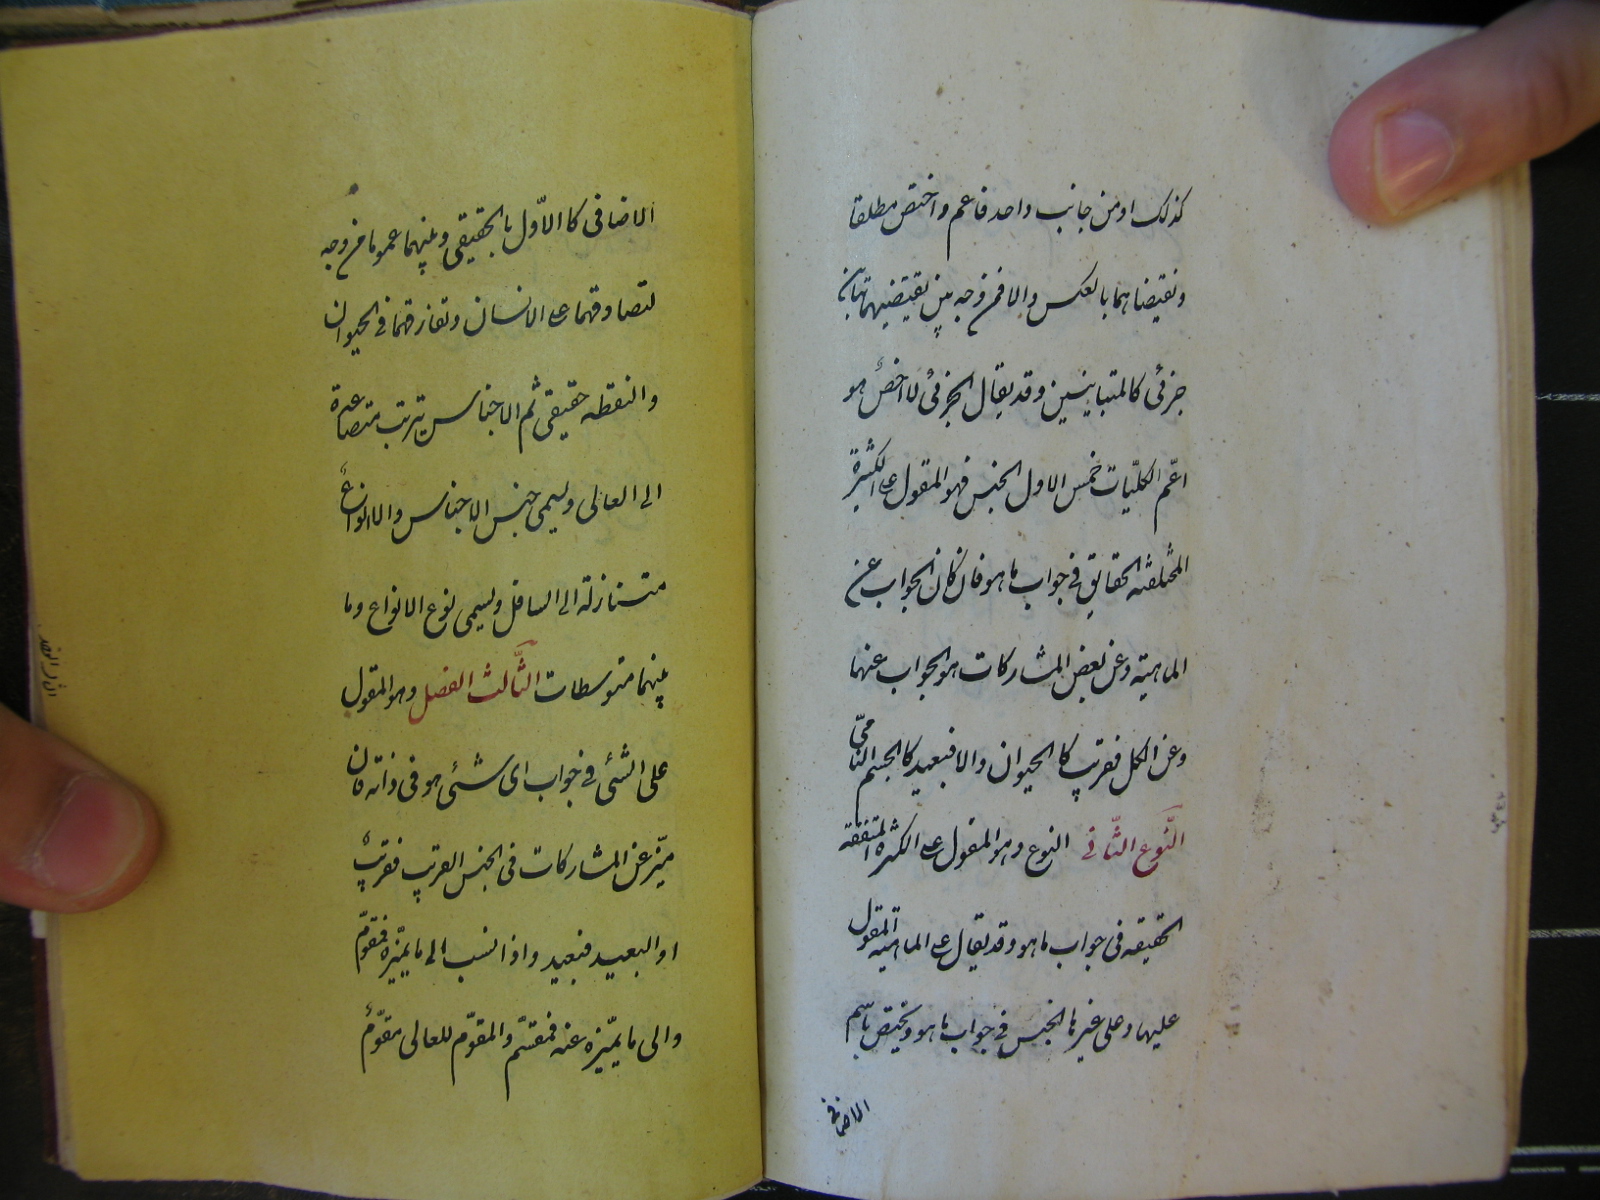 كذلك او من جانب واحد فاعم واخص مطلقا
ونقيضاهما بالعكس والا فمن وجه وبين نقيضيهما تباين
جزئى كالمتباينين وقد يقال الجزئى للاخص وهو
اعم الكليّات خمس الاول الجنس فهو المقول على الكثرة
المختلفة الحقايق فى جواب ما هو فان كان الجواب عن
الماهية وعن بعض المشاركات هو الجواب عنها
وعن الكل فقريب كالحيوان والا فبعيد كالجسم النامى
النّوع الثّانى النوع وهو المقول على الكثرة المتفقة
الحقيقه فى جواب ما هو وقد يقال على الماهية المقول
عليها وعلى غيرها الجنس فى جواب ما هو ويختص باسم
الاضافى
الاضافى كالاوّل بالحقيقى وبينهما عموما من وجه
لتصادقهما على الانسان وتفارقهما فى الحيوان
والنقطه حقيقى ثم الاجناس يترتب متصاعدة
الى العالى ويسمى جنس الاجناس والانواع
متنازلة الى السافل ويسمى نوع الانواع وما
بينهما متوسطات الثّالث الفصل وهو المقول
على الشئى فى جواب اى شئى هو فى ذاته فان
ميّز عن المشاركات فى الجنس القريب فقريب
او البعيد فبعيد واذا نسب الى ما يميّزه فمقوّم
والى ما يميّزه عنه فمقسّم والمقوّم للعالى مقوّم